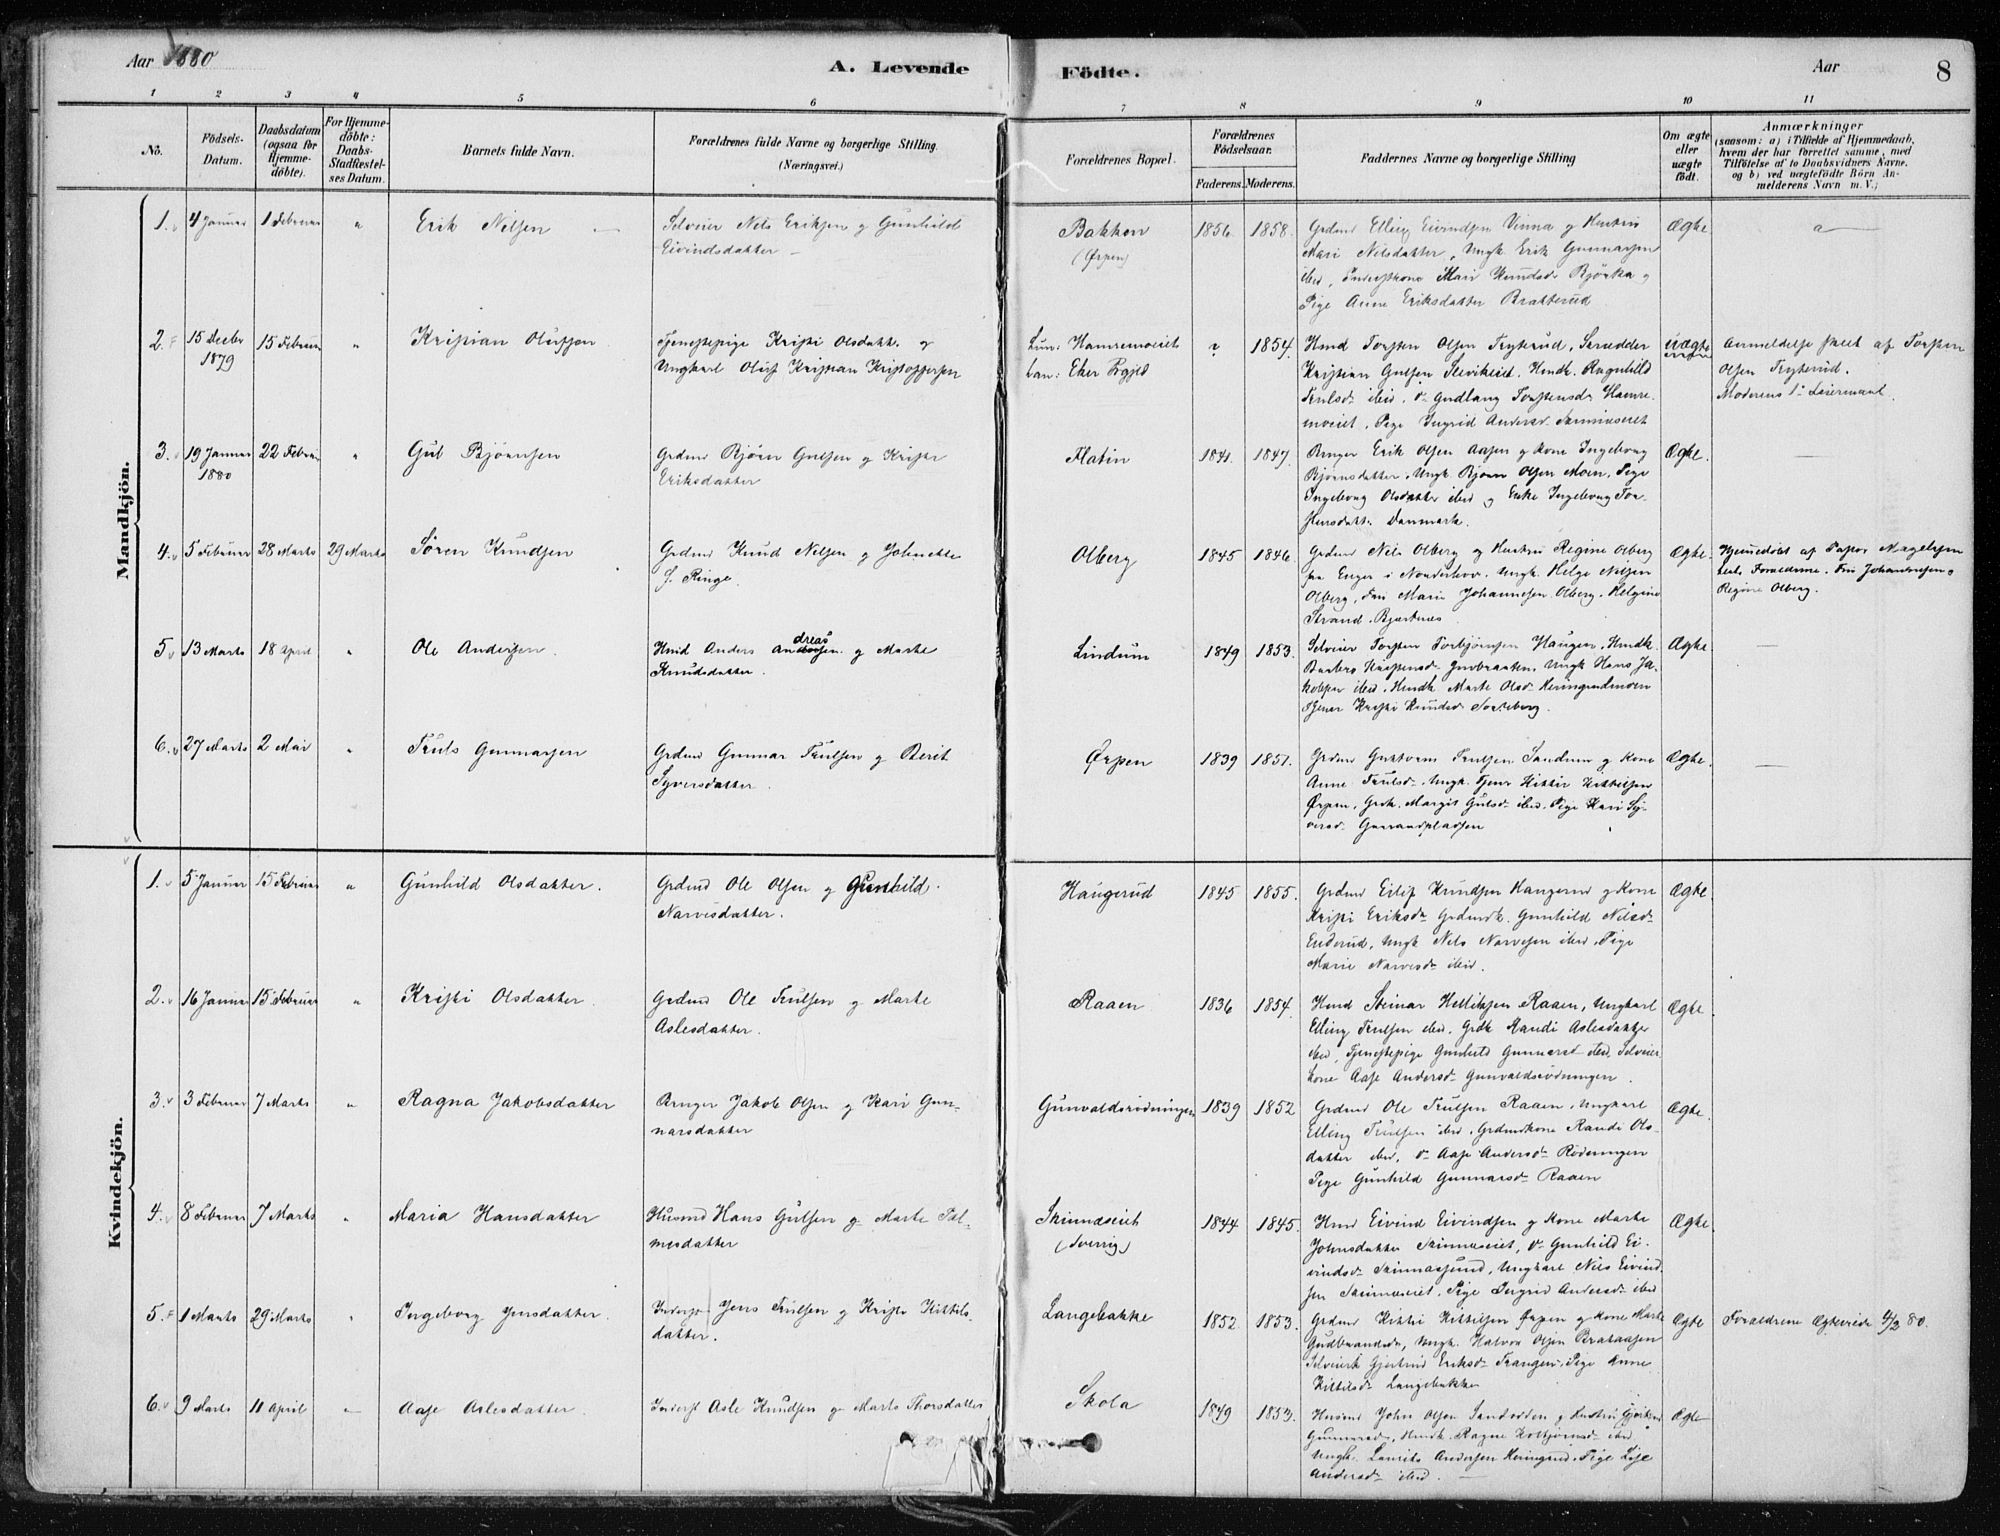 Aar 1880
A. Levende
Födte.
Aar
8
1
2
3
4
5
6
7
8
9
10
11
No.
Födsels-
Datum.
Daabsdatum
(ogsaa for
Hjemme-
döbte).
For Hjemme-
döbte:
Daabs-
Stadfæstel-
ses Datum.
Barnets fulde Navn.
Forældrenes fulde Navne og borgerlige Stilling.
(Næringsvei.)
Forældrenes Bopæl.
Forældrenes
Födselsaar.
Faderens.
Moderens.
Faddernes Navne og borgerlige Stilling
Om ægte
eller
uægte
födt.
Anmærkninger
(saasom: a) i Tilfælde af Hjemmedaab,
hvem der har forrettet samme, med
Tilföielse af to Daabsvidners Navne.
og b) ved uægtefödte Börn An-
melderens Navn m. V.;
Mandkjön.
1. 4 Januar 1 Februar " Erik Nilsen Selveier Nils Eriksen og Gunhild
Eivindsdatter
Bakken
(Ørpen)
1856. 1858. Grdmd Elling Eivindsen Vinna og Hustru
Mari Nilsdatter, Ungk Erik Gunnarsen
ibid, Inderstkone Mari Knudsd Bjørka og
Pige Anne Eriksdatter Bratterud
Ægte
2. 15 Decbr
1879
15 Februar " Kristian Olufsen Tjenestepige Kristi Olsdatt. og
Ungkarl Oluf Kristian Kristoffersen
Hamremoeiet
Eker Prgjeld
? 1854. Hmd Torsten Olsen Tryterud, Skrædder
Kristian Gulsen Slevikeiet. Hmdk. Ragnhild
Trulsd ibid, Gudlaug Torstensd Hamre-
moeiet, Pige Ingrid Andersd Skinnæseiet
Uægte
Anmeldelse skeet af Torsten
Olsen Tryterud.
Moderens 1ste Leiermaal.
3. 19 Januar
1880
22 Februar " Gul Bjørnsen Grdmd Bjørn Gulsen og Kristi
Eriksdatter
Flatin
1841. 1847. Bruger Erik Olsen Aasen og Kone Ingeborg
Bjørnsdatter. Ungk. Bjørn Olsen Moen, Pige
Ingeborg Olsdatter ibid og Enke Ingeborg Tor-
stensdatt. Danmark.
Ægte.
4. 5 Februar 28 Marts 29 Marts Søren Knudsen Grdmd Knud Nilsen og Johnette
f. Ringe.
Olberg
1845 1846. Grdmd Nils Olberg og Hustru Regine Olberg
fra Enger i Norderhov. Ungk. Helge Nilsen
Olberg, Fru Marie Johannesen Olberg. Helgine
Strand. Bjertnæs
Ægte.
Hjemmedøbt af Pastor Magelssen
Forældrene. Fru Johannesen.
Regine Olberg.
5 13 Marts 18 April " Ole Andersen. Hmd Anders Andreassen og Marte
Knudsdatter.
Lindum
1849 1853. Selveier Torsten Torbjørnsen Haugen, Hmdk.
Barbro Kristensd Gulbraaten. Ungk Hans Ja-
kobsen ibid. Hmdk Marte Olsd Heringrudmoen
Tjener Kristi Knudsd Sorteberg.
Ægte.
6. 27 Marts 2 Mai " Truls Gunnarsen Grdmd Gunnar Trulsen og Berit
Syversdatter.
Ørpen
1839 1851. Grdmd Guttorm Trulsen Sandum og Kone
Anne Trulsd. Ungk. Tjener Kittil Kittilsen
Ørpen, Grdk. Margit Gulsd ibid. Pige Kari Sy-
versd
Ægte.
Kvindekjön.
1. 5 Januar 15 Februar " Gunhild Olsdatter. Grdmd Ole Olsen og Gunhild
Narvesdatter.
Haugerud
1845 1855. Grdmd Eilif Knudsen Haugerud og Kone
Kristi Eriksd. Grdmdk. Gunhild Nilsd
Enderud, Ungk Nils Narvesen ibid. Pige
Marie Narvesd ibid.
Ægte.
2. 16 Januar 15 Februar " Kristi Olsdatter. Grdmd Ole Trulsen og Marte
Aslesdatter.
Raaen
1836 1854. Hmd Steinar Helliksen Raaen, Ungkarl
Elling Trulsen ibid. Grdk Randi Aslesdatter
ibid, Tjenestepige Gunhild Gunnarsd ibid, Selveier-
kone Aase Andersd Gunvaldsrödningen.
Ægte.
3. 3 Februar 7 Marts " Ragna Jakobsdatter Bruger Jakob Olsen og Kari Gun-
narsdatter
Gunvaldsrödningen
1839 1852 Grdmd Ole Trulsen Raaen, Ungkarl
Elling Trulsen ibid. Grdmdkone Randi Ols-
datter ibid, Aase Andersd Rödningen
Pige Gunhild Gunnarsd Raaen
Ægte.
4. 8 Februar 7 Marts " Maria Hansdatter Husmd Hans Gulsen og Marte Pal-
mesdatter
Skinnæseiet
(Sverrig)
1844 1845. Hmd Eivind Eivindsen og Kone Marte
Johnsdatter Skinnæseiet, Gunhild Ei-
vindsd Skinnæssund, Ungkarl Nils Eivind-
sen Skinnæseiet. Pige Ingrid Andersd ibid
Ægte.
5. 1 Marts 29 Marts " Ingeborg Jensdatter. Inderst Jens Trulsen og Kristi Kittils-
datter.
Langebakke
1852. 1853. Grdmd Kittil Kittilsen Ørpen og Kone Marte
Gudbrandsd, Ungk. Halvor Olsen Brataasen
Selveierk Gjertrud Eriksd Frangen. Pige Anne
Kittilsd Langebakke
Ægte
Forældrene Ægteviede 4/2 80.
6. 9 Marts 11 April Aase Aslesdatter. Inderst Asle Knudsen og Marte Thorsdatter
Skola
1849 1853. Husmd John Olsen Sandodden og Hustru
Gunnarsd, Hmdk. Ragne Torbjørnsd ibid
Ungk. Laurits Andersen Heringrud. Pige Lise
Andersd ibid.
Ægte